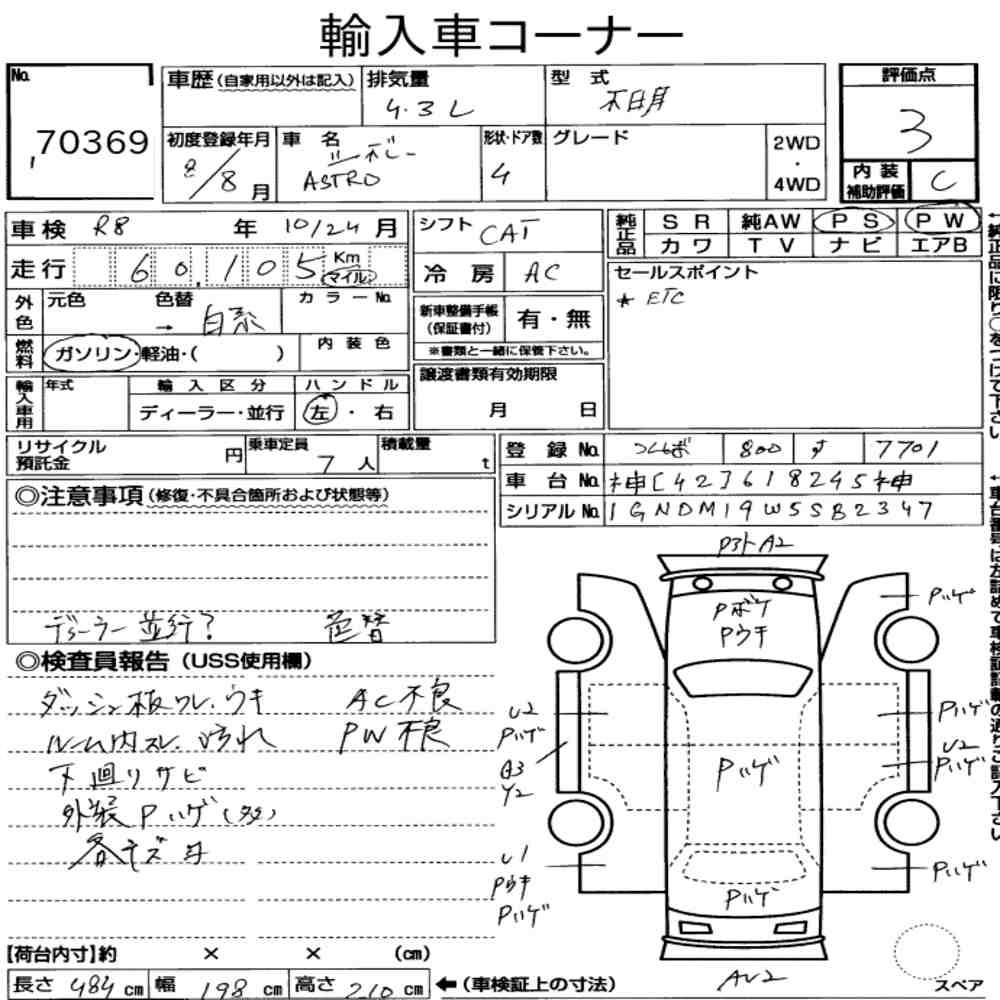 輸入車コーナー
No.
70369
車歴 (自家用以外は記入)
排気量
4.3L
型 式
不明
評価点
3
初度登録年月
8/8月
車 名
シボレー
ASTRO
形状・ドア数
4
グレード
2WD
・
4WD
内 装
補助評価
C
車検 R8 年 10/24 月
走行 60,105 Km
マイル
シフト CAT
冷 房 AC
純正品
S R 純AW P S P W
カワ T V ナビ エアB
セールスポイント
★ ETC
外色
元色 色替 カラーNo.
→ 白系
燃料
ガソリン・軽油・( )
内 装 色
新車整備手帳
(保証書付)
有・無
※書類と一緒に保管下さい。
輸入車用
年式
輸 入 区 分
ディーラー・並行
ハ ン ド ル
左・右
譲渡書類有効期限
月 日
リサイクル
預託金
円
乗車定員
7人
積載量
t
登 録 No. つくば 800 す 7701
車 台 No. 神[42]618245神
シリアル No. 1GNDM19W5SB2347
◎注意事項 (修復・不具合箇所および状態等)
ディーラー並行? 色替
◎検査員報告 (USS使用欄)
ダッシュ板ワレ.ウキ AC不良
ルーム内スレ.汚れ PW不良
下廻りサビ
外装Pハゲ(多)
各キズ
【荷台内寸】約 × × (cm)
長さ 484 cm 幅 198 cm 高さ 210 cm
←(車検証上の寸法)
スペア
PヌトA2
Pボケ
Pウキ
Pハゲ
U2
Pハゲ
Pハゲ
U2
Pハゲ
Pハゲ
Y2
U1
Pウキ
Pハゲ
Pハゲ
Pハゲ
AU2
↑純正品に限り○をつけて下さい
↑車台番号は左詰めで車検証記載の通りご記入下さい